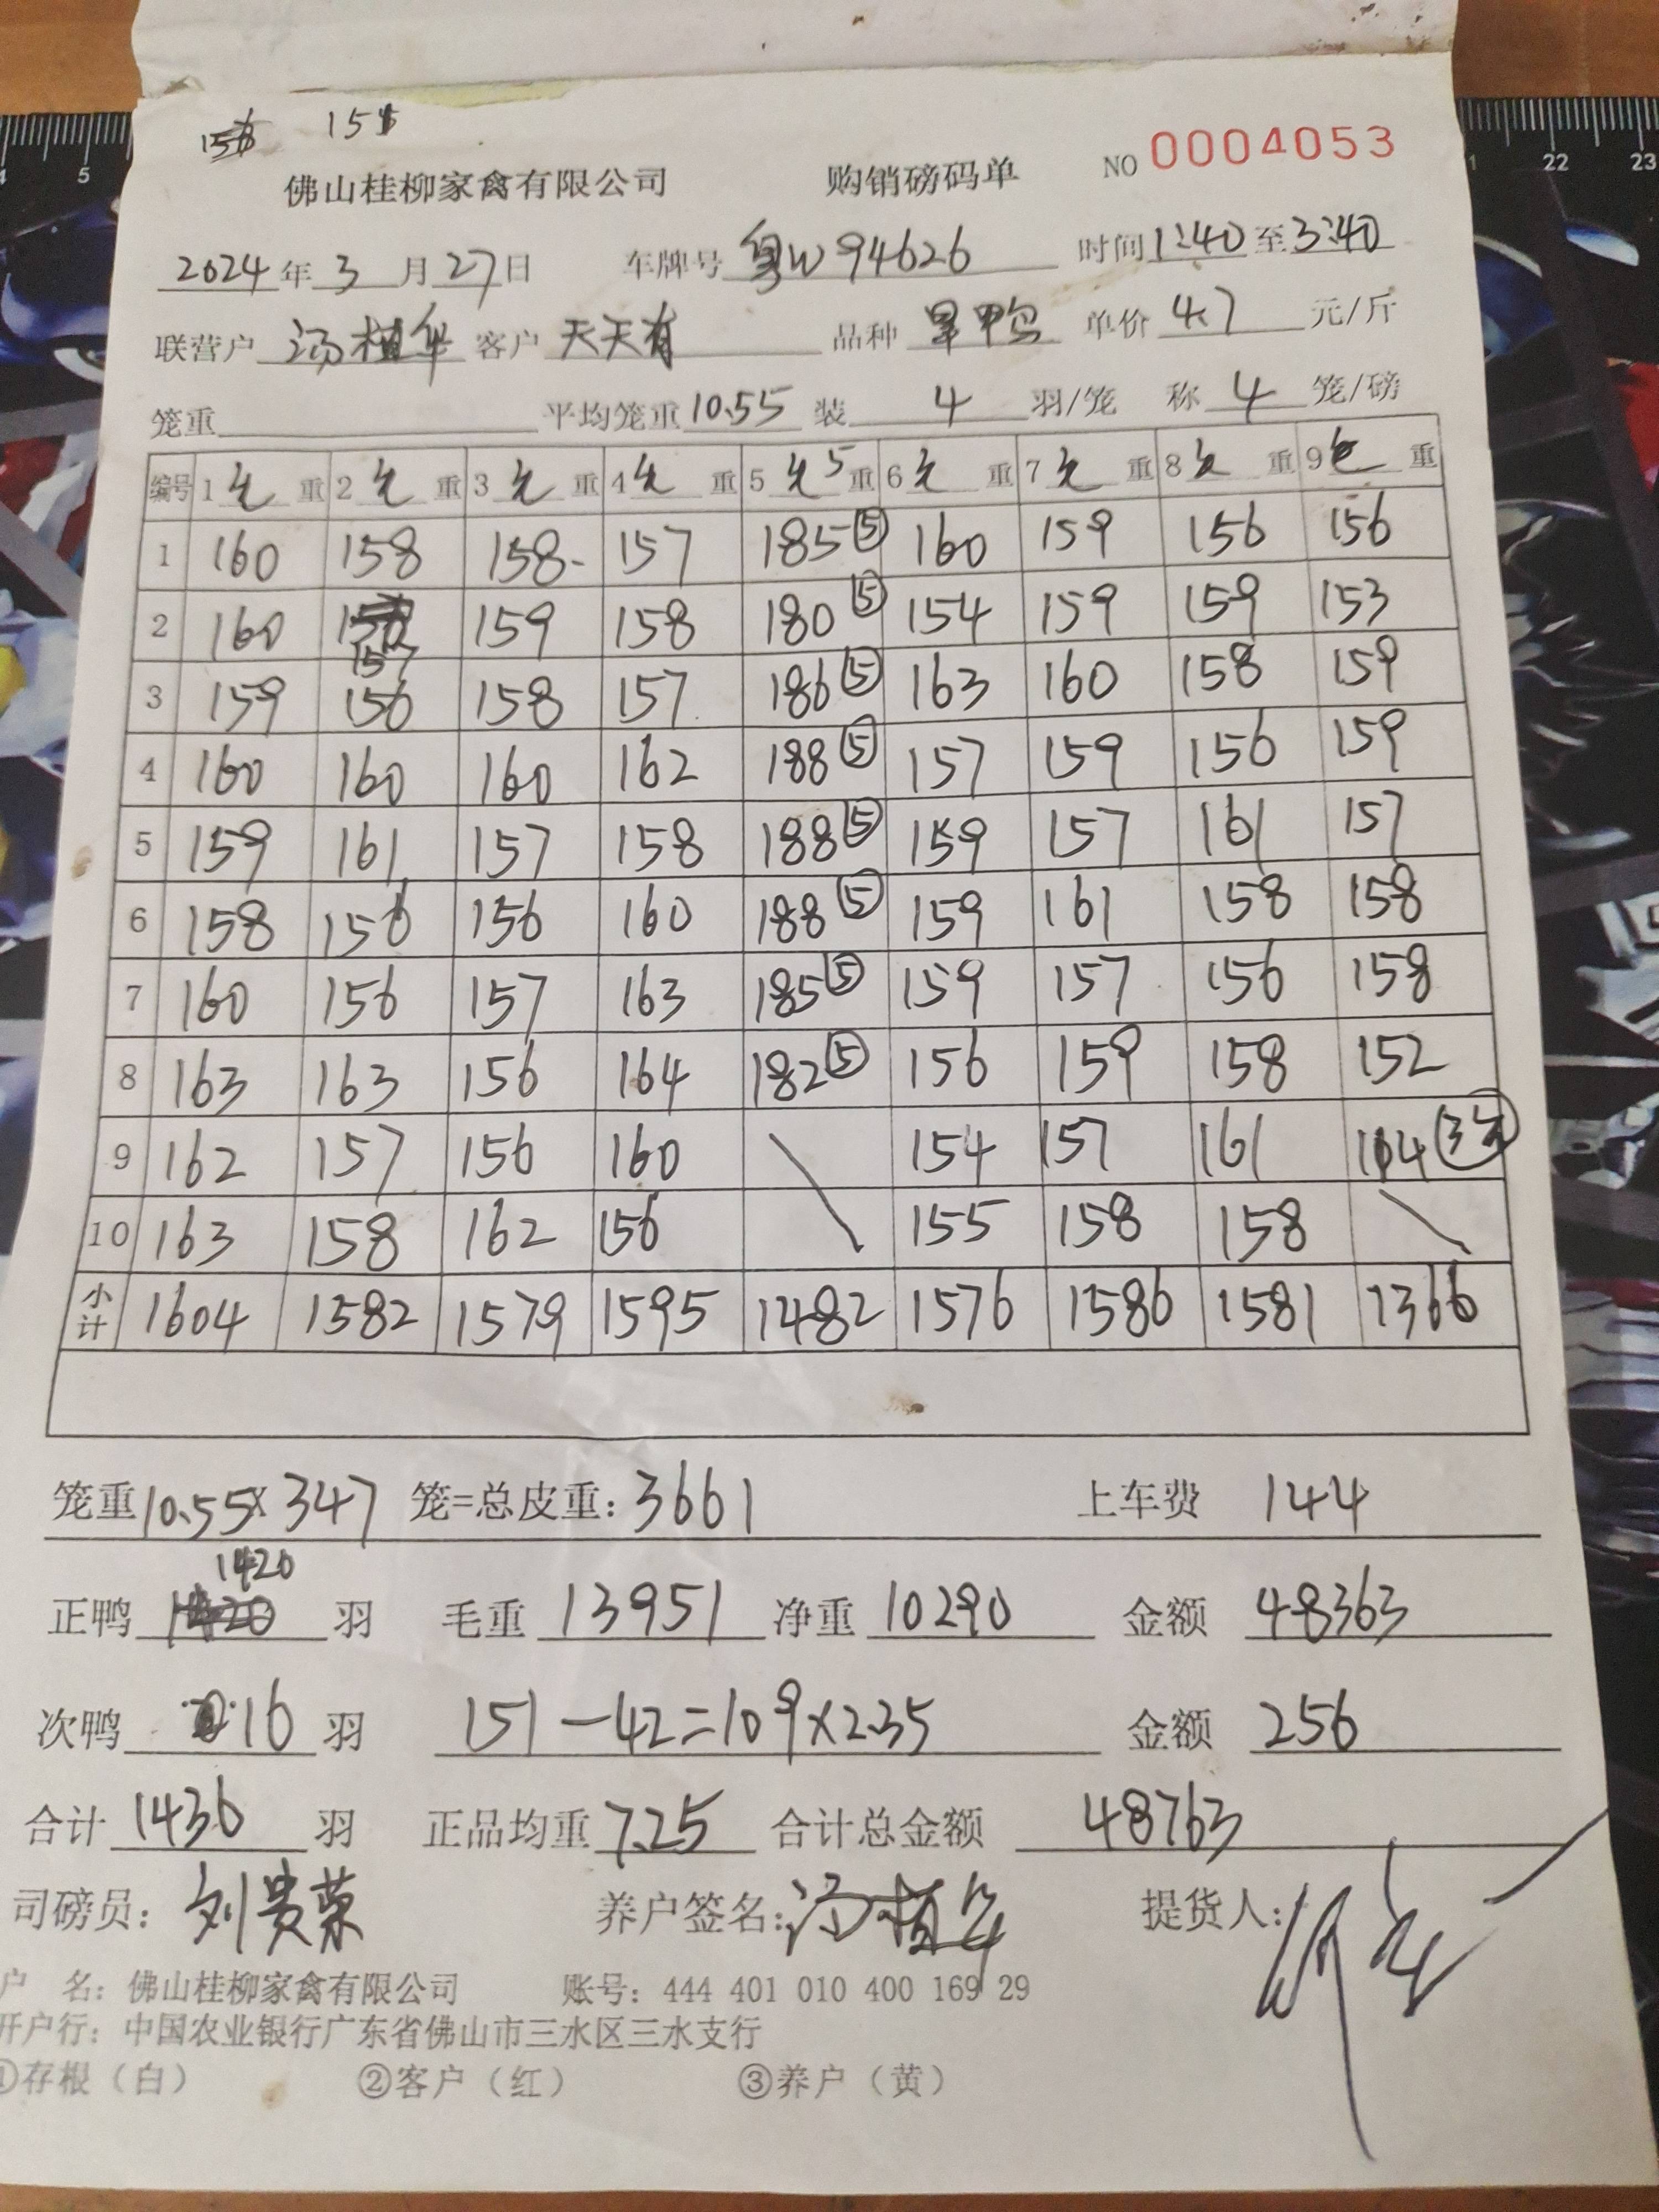 151
佛山桂柳家禽有限公司 购销磅码单 NO 0004053
2024年3月27日 车牌号 粤W94626 时间1:40至3:40
联营户 汤植华 客户 天天有 品种 旱鸭 单价 4.7 元/斤
笼重 平均笼重10.55 装 4 羽/笼 称 4 笼/磅
编号 1 重 2 重 3 重 4 重 5 5 重 6 重 7 重 8 重 9 重
1 160 158 158- 157 185⑤ 160 159 156 156
2 160 157 159 158 180⑤ 154 159 159 153
3 159 156 158 157 186⑤ 163 160 158 159
4 160 160 160 162 188⑤ 157 159 156 159
5 159 161 157 158 188⑤ 159 157 161 157
6 158 156 156 160 188⑤ 159 161 158 158
7 160 156 157 163 185⑤ 159 157 156 158
8 163 163 156 164 182⑤ 156 159 158 152
9 162 157 156 160 \ 154 157 161 114 3
10 163 158 162 156 155 158 158 \
小计 1604 1582 1579 1595 1482 1576 1586 1581 1366
笼重10.55×347 笼=总皮重：3661 上车费 144
正鸭 1420 羽 毛重 13951 净重 10290 金额 48363
次鸭 16 羽 151-42=109×2.35 金额 256
合计 1436 羽 正品均重 7.25 合计总金额 48763
司磅员：刘贵荣 养户签名：汤植华 提货人：
户 名：佛山桂柳家禽有限公司 账号：444 401 010 400 169 29
开户行：中国农业银行广东省佛山市三水区三水支行
①存根（白） ②客户（红） ③养户（黄）